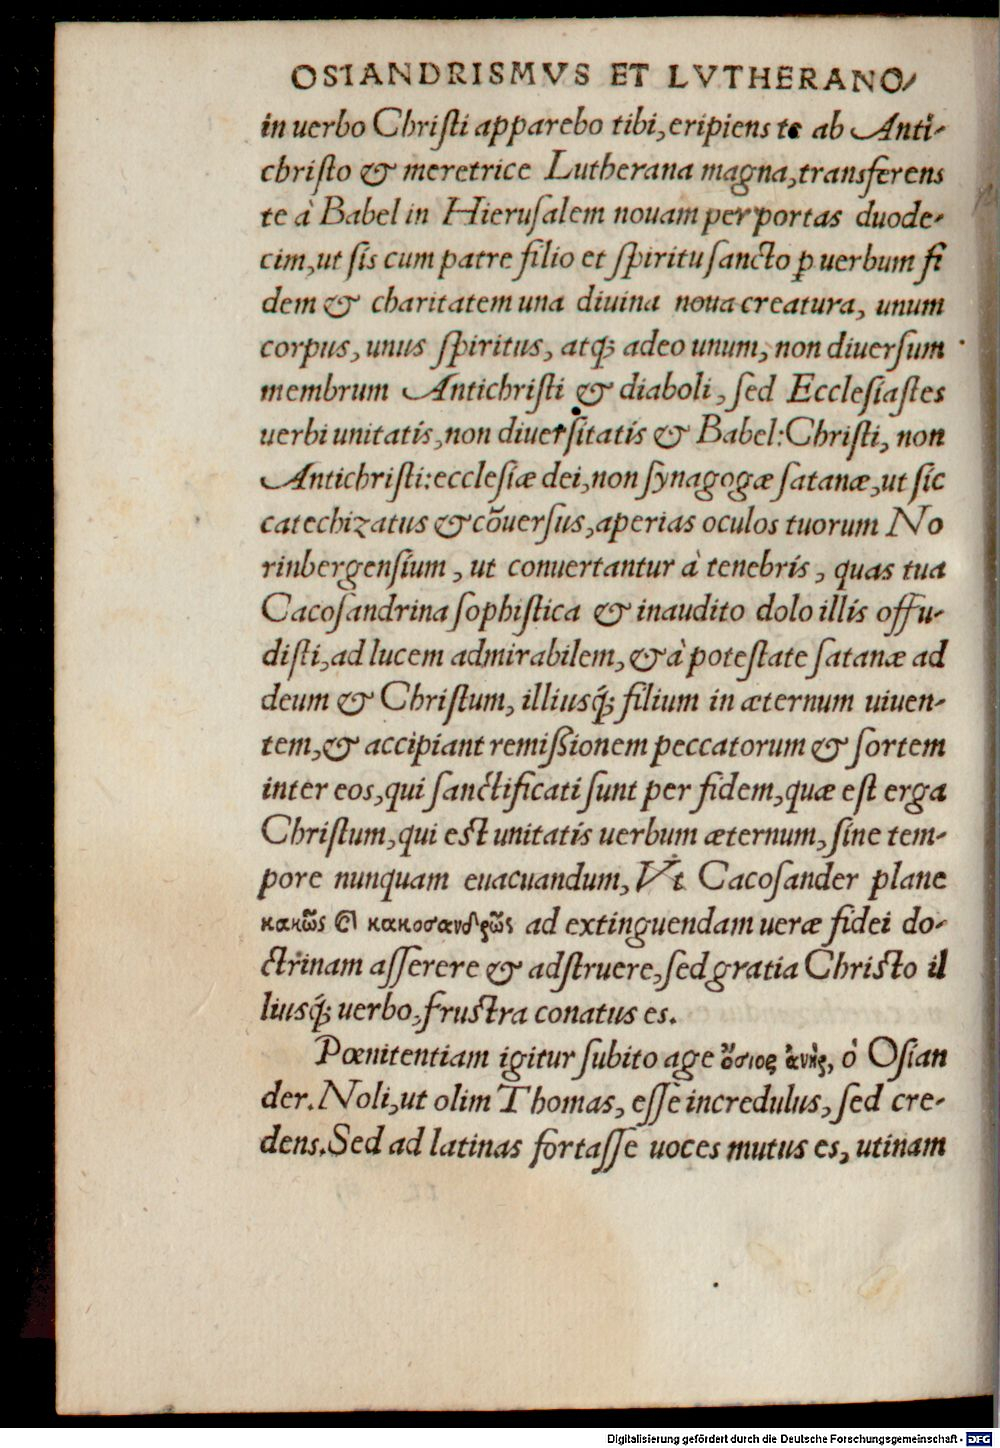 OSIANDRISMVS ET LVTHERANO/
in uerbo Chriſti apparebo tibi, eripiens te ab Anti-
chriſto & meretrice Lutherana magna, transferens
te à Babel in Hieruſalem nouam per portas duode-
cim, ut ſis cum patre filio et ſpiritu ſancto ꝑ uerbum fi
dem & charitatem una diuina noua creatura, unum
corpus, unus ſpiritus, atq; adeo unum, non diuerſum
membrum Antichriſti & diaboli, ſed Eccleſiaſtes
uerbi unitatis, non diuerſitatis & Babel: Chriſti, non
Antichriſti: eccleſiæ dei, non ſynagogæ ſatanæ, ut ſic
catechizatus & cõuerſus, aperias oculos tuorum No
rinbergenſium, ut conuertantur à tenebris, quas tua
Cacoſandrina ſophiſtica & inaudito dolo illis offu-
diſti, ad lucem admirabilem, & à poteſtate ſatanæ ad
deum & Chriſtum, illiusq́; filium in æternum uiuen-
tem, & accipiant remißionem peccatorum & ſortem
inter eos, qui ſanctificati ſunt per fidem, quæ eſt erga
Chriſtum, qui est unitatis uerbum æternum, ſine tem-
pore nunquam euacuandum, Vt Cacoſander plane
κακῶς ϗ κακοσανδρῶς ad extinguendam ueræ fidei do-
ctrinam aſſerere & adſtruere, ſed gratia Christo il
liusq́; uerbo, frustra conatus es.
Pœnitentiam igitur ſubito age ὅσιος ἀνὴρ, ô Oſian
der. Noli, ut olim Thomas, eſſe incredulus, ſed cre-
dens. Sed ad latinas fortaſſe uoces mutus es, utinam
Digitalisierung gefördert durch die Deutsche Forschungsgemeinschaft - DFG